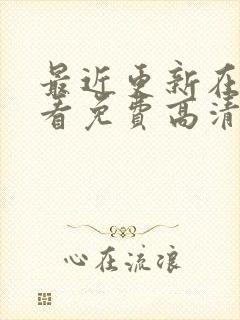 最近更新在
看免费高清
心在流浪